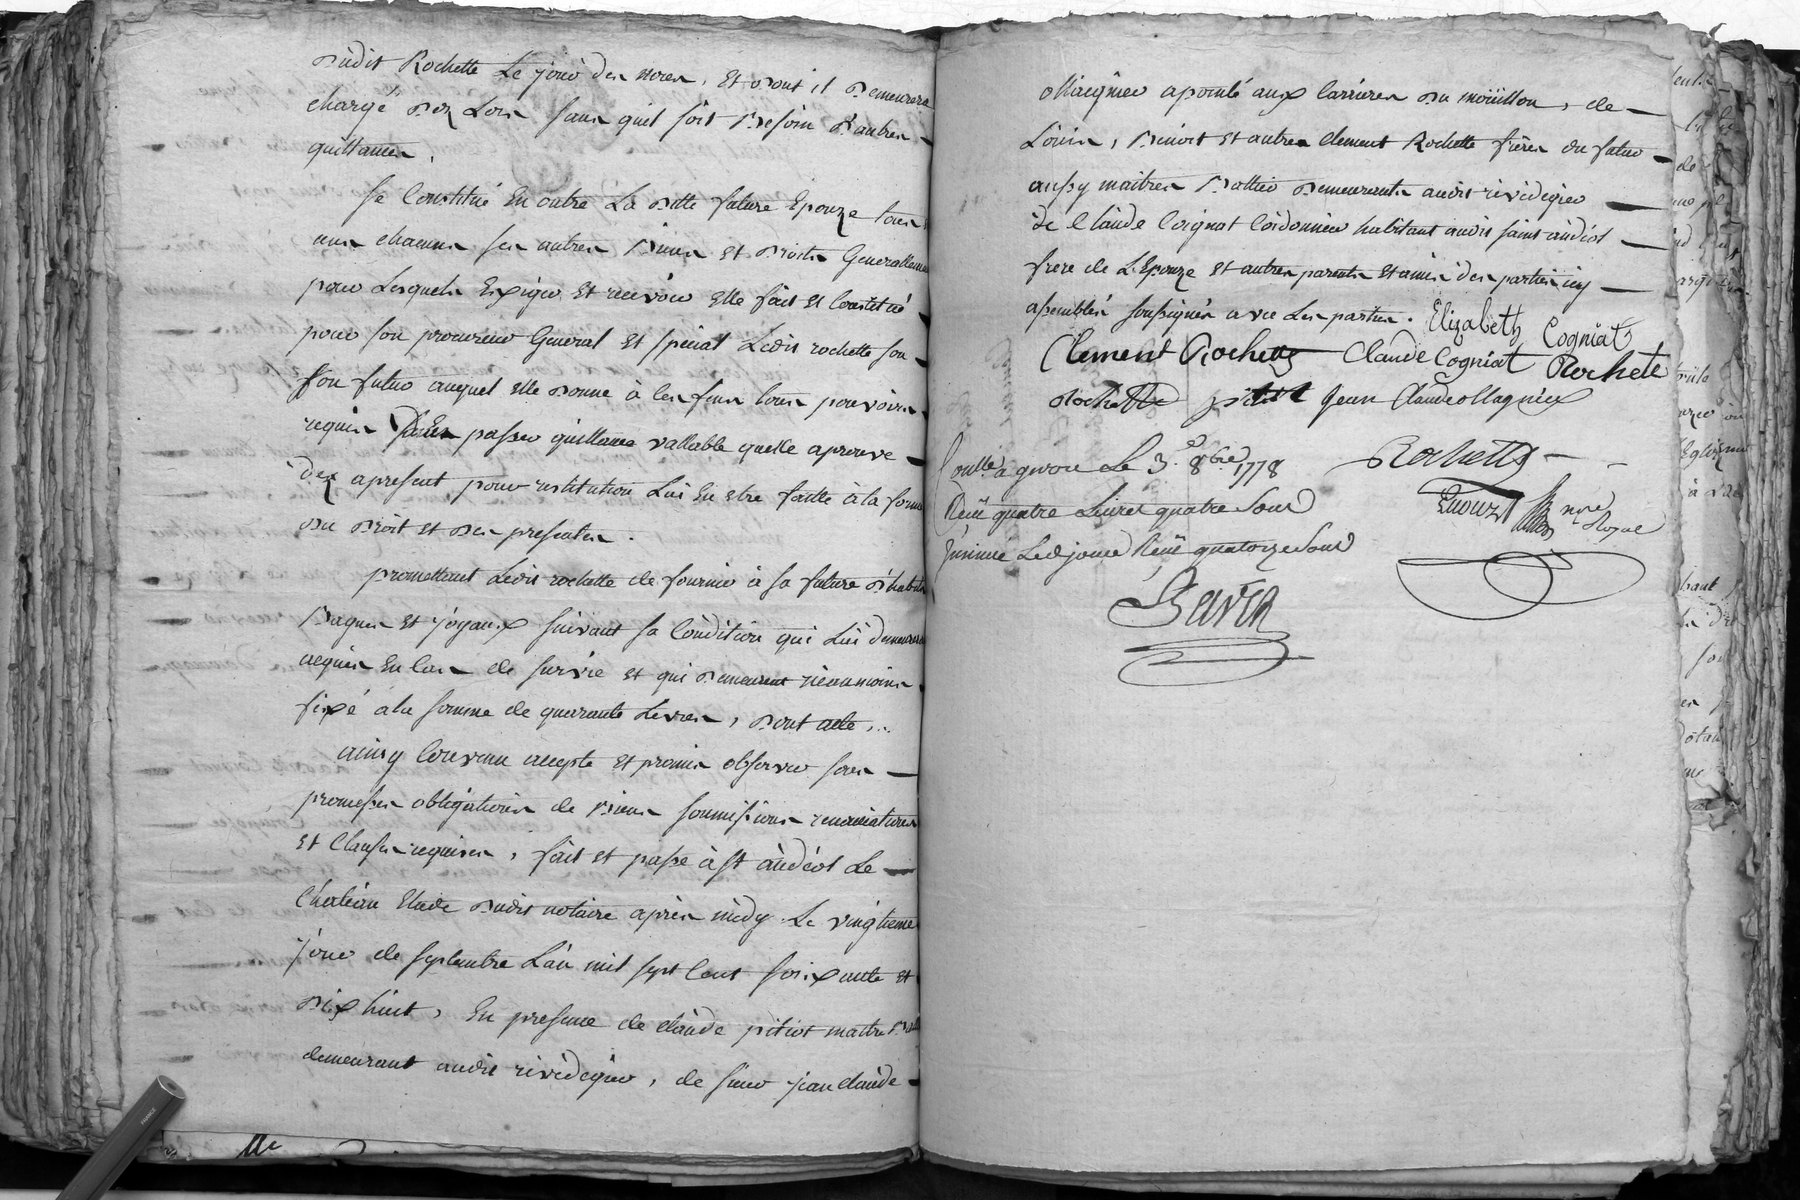 dudit Rochette Le jour des noces, Et dont il demeurera
chargé dez Lors sans quil soit besoin d'autres
quittances.
Se Constitue En outre La ditte future Epouze tous
uns chacuns ses autres biens Et droits Generallement
pour Lesquels Exiger Et recevoir Elle fait Et Constitué
pour son procureur General Et spécial Ledit rochette son
son futur auquel elle donne à ces fins tous pouvoirs
requis passer quittance vallable quelle aprouve
dez apresent pour restitution Lui En etre faitte à la forme
du droit Et des presentes.
promettant Ledit rochette de fournir à sa future d'habits
bagues Et joyaux suivant sa Condition qui Lui demeureront
acquis En Cas de survie Et qui demeurent néanmoins
fixé à la somme de quarante Livres, dont acte,
ainsy Convenu accepté Et promis observer sous
promesses obligations de biens soumissions renonciations
Et Clauses requises, fait Et passé à st andéol Le
Château Etude dudit notaire après midy Le vingtieme
jour de septembre L'an mil sept Cent soixante Et
dix huit, En presence de claude pitiot maitre
demeurant audit rivedegier, de sieur jean claude
Magnien apointé aux Carrieres du moüillon, de
Loüis, benoit Et autres Clement Rochette freres du futur
aussy maitres demeurants audit rivedegier
de Claude Coignat Cordonnier habitant audit saint andéol
frere de L'Epouze Et autres parents Et amis des parties icy
assemblés soussignés avec Les parties. Elizabeth Cogniat
Clement Rochette Claude Cogniat Rochete
Rochette pitiot Jean Claude Magnien
Conllé à givors Le 3e 8bre 1778
Reçu quatre Livres quatre Sous
Insinué Led jour Reçu quatorze Sous
Rochette
nore
Royal